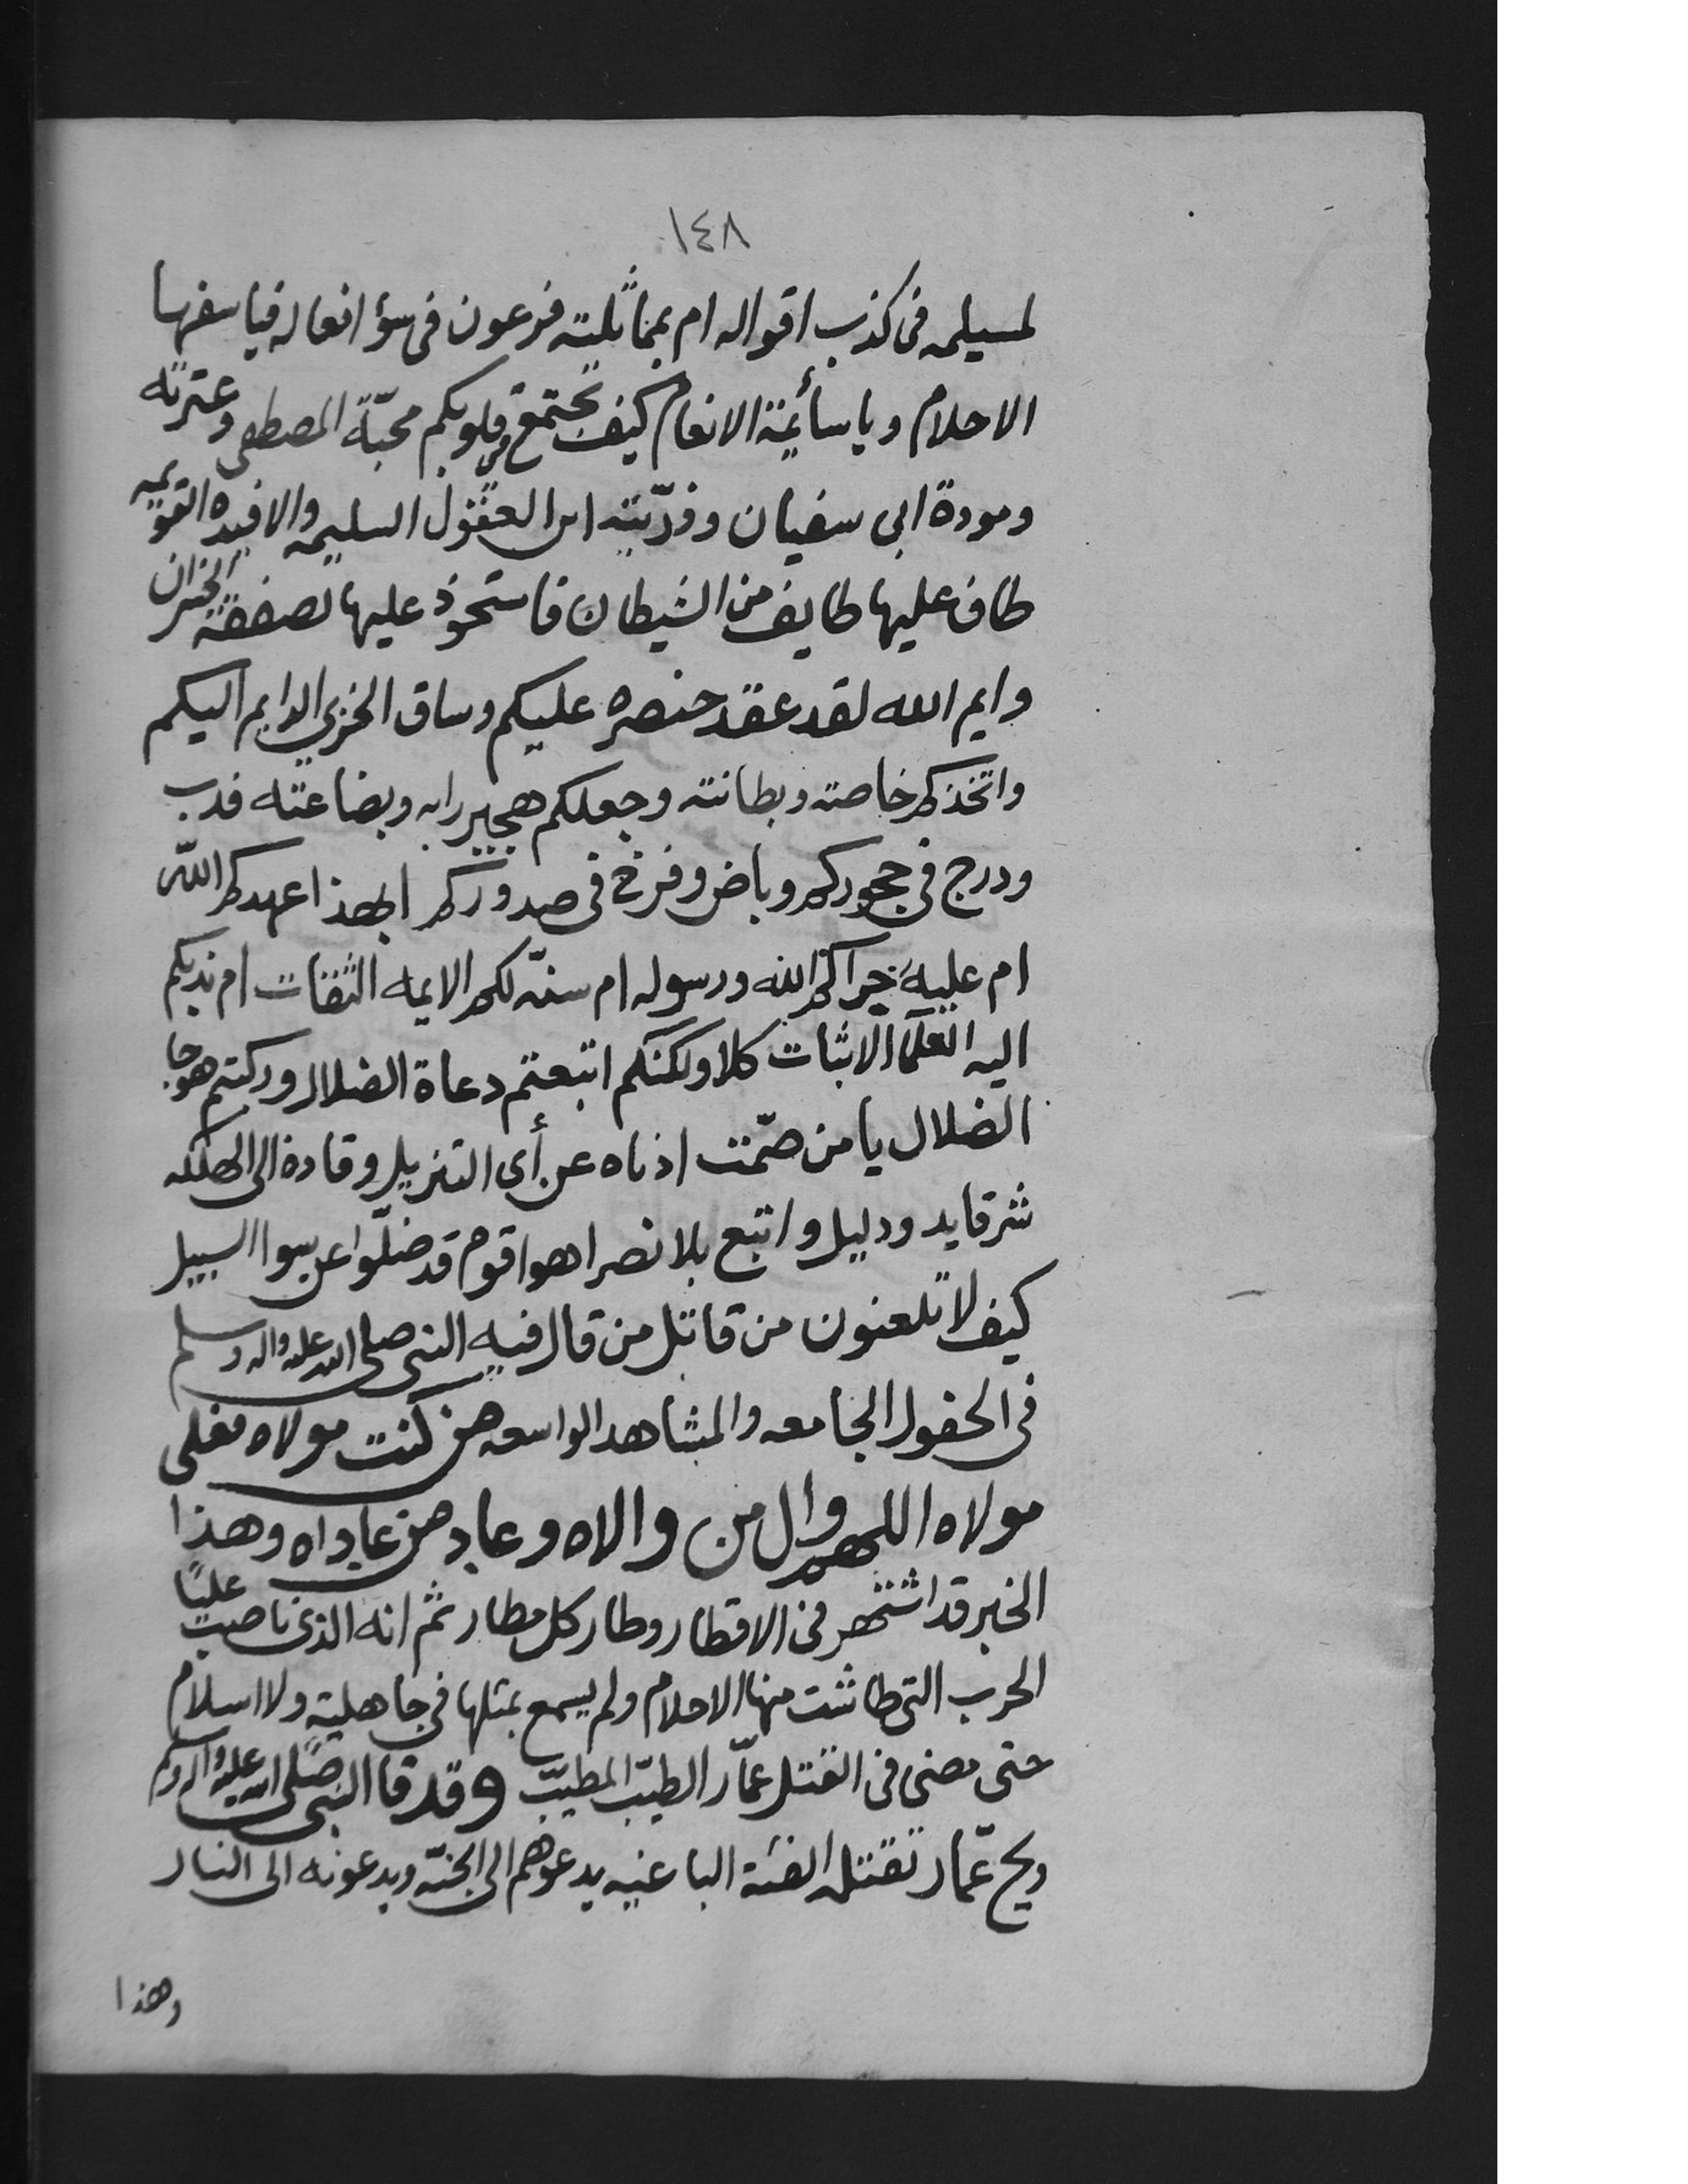 ١٤٨
لمسيلمه فى كذب اقواله ام بمماثلته فرعون فى سؤ افعاله فيا سفها
الاحلام ويا سأئمة الانعام كيف تجتمع فى قلوبكم محبّة المصطفى وعترته
ومودة ابى سفيان وذرّيته اين العقول السليمه والافيده القويمه
طاف عليها طايف من الشيطان فاستحوذ عليها لصفقة الخسران
وايم الله لقد عقد خنصره عليكم وساق الخزي الدايم اليكم
واتخذكم خاصته وبطانته وجعلكم هجيراه وبضاعته فدب
ودرج فى حجوركم وباض وفرخ فى صدوركم ابهذا عهدكم الله
ام عليه الله ورسوله ام سنّه لكم الايمه الثقات ام ندبكم
اليه العلما الاثبات كلا ولكنكم اتبعتم دعاة الضلال وركبتم هوجا
الضلال يا من صمّت اذناه عن أى التنزيل وقاده الى الهلكه
شر قايد ودليل واتبع بلا نصر اهوا قوم قد ضلّوا عن سوا السبيل
كيف لا تلعنون من قاتل من قال فيه النبى صلى الله عليه واله وسلم
فى الحفول الجامعه والمشاهد الواسعه من كنت مولاه فعلى
مولاه اللهم وال من والاه وعاد من عاداه وهذا
الخبر قد اشتهر فى الاقطار وطار كل مطار ثم انه الذى ناصب عليًا
الحرب التى طاشت منها الاحلام ولم يسمع بمثلها فى جاهلية ولا اسلام
حتى مضى فى القتل عمّار الطيّب المطيّب وقد قا النبى صلى الله عليه واله وسلم
ويح عمّار تقتله الفئة الباغيه يدعوهم الى الجنّه ويدعونه الى النار
وهذا